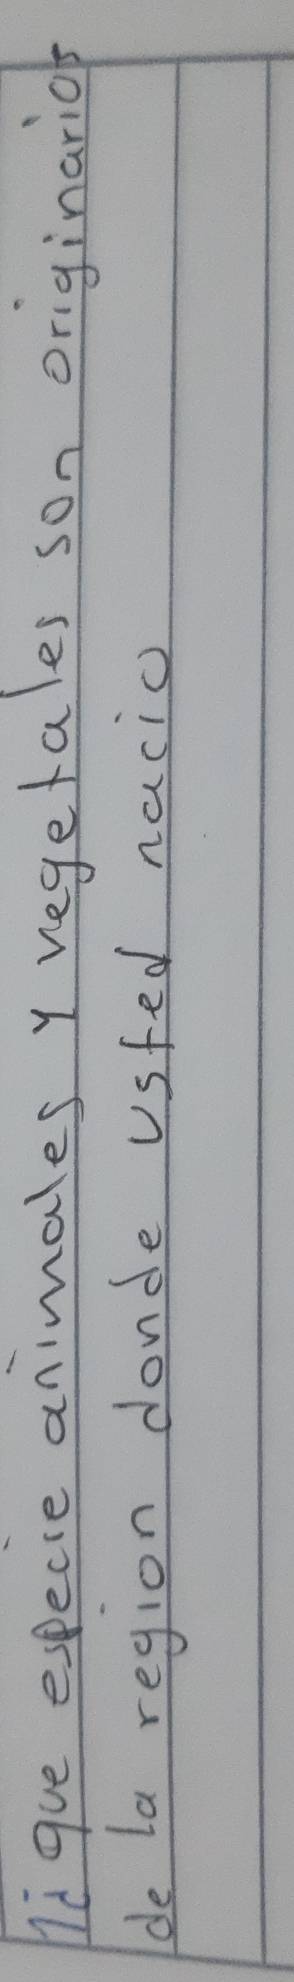 1¿ que especie animales y vegetales son originarios
de la region donde usted nacio